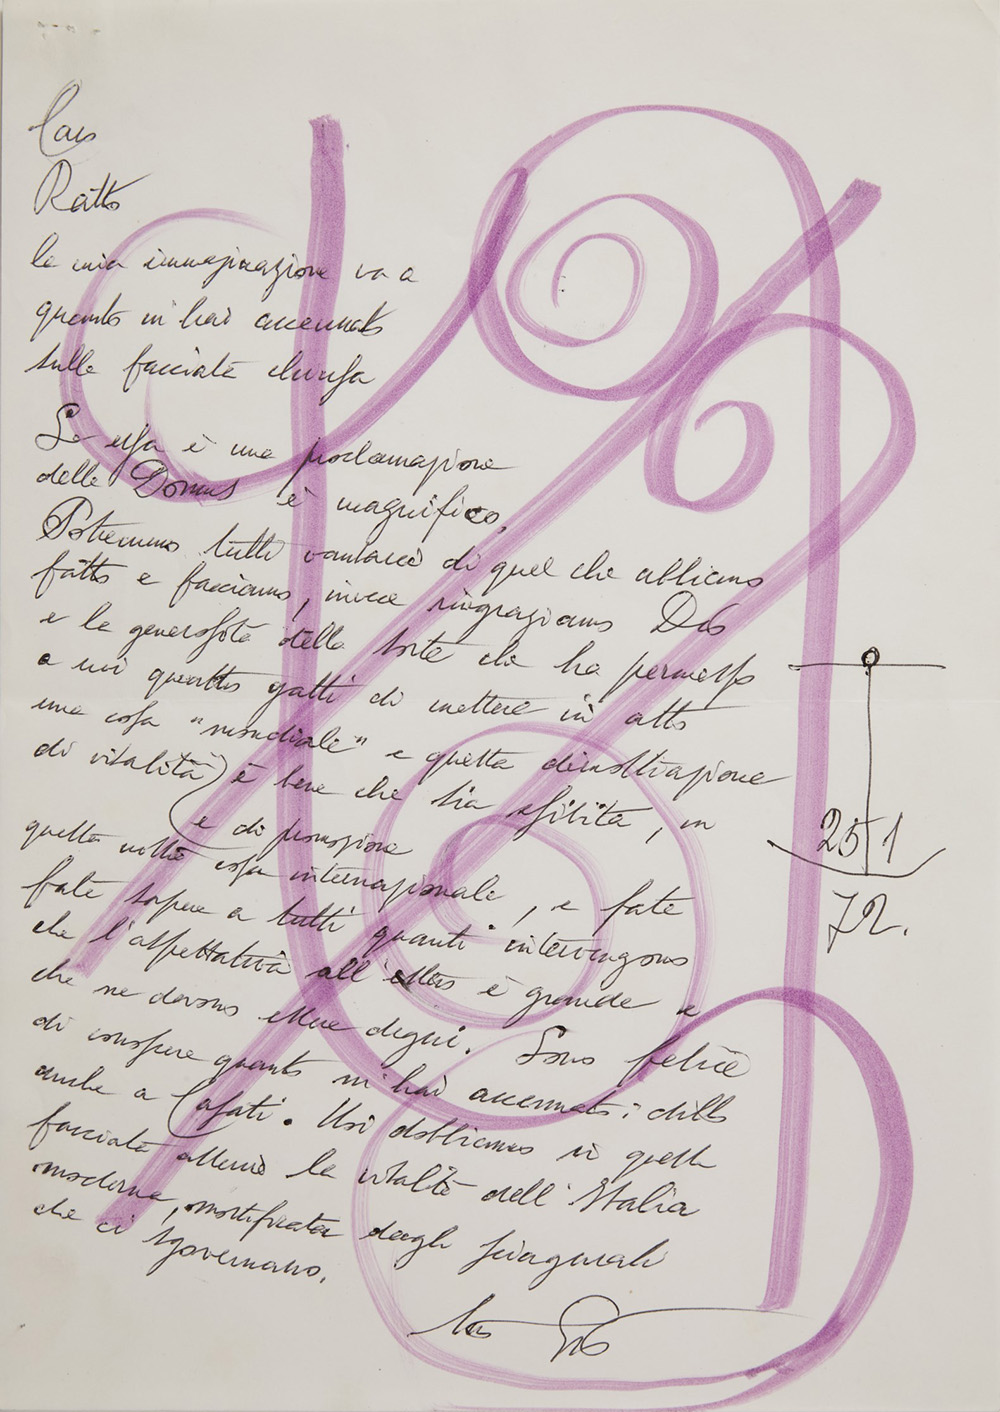 Caro
Ratto
la mia immaginazione va a
quanto m'hai accennato
sulla facciata chiusa
Se essa è una proclamazione
della Domus è magnifico,
Potremmo tutti vantarci di quel che abbiamo
fatto e facciamo, invece ringraziamo Dio
e la generosità della sorte che ha permesso
a noi quattro gatti di mettere in atto
una cosa "mondiale" e questa dimostrazione
di vitalità è bene che sia esibita, in
e di promozione
questa nostra cosa internazionale, e fate
fate sapere a tutti quanti intervengono
che l'aspettativa all'estero è grande e
che ne devono essere degni. Sono felice
di conoscere quanto m'hai accennato: dillo
anche a Casati. Noi dobbiamo in questa
facciata la vitalità dell'Italia
moderna, mortificata dagli sciagurati
che ci sgovernano.
tuo Gio
25 1
72.